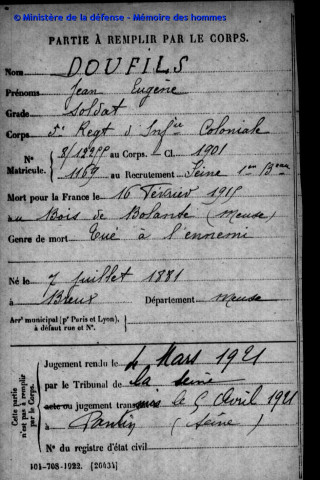 © Ministère de la défense - Mémoire des hommes
PARTIE À REMPLIR PAR LE CORPS.
Nom DOUFILS
Prénoms Jean Eugène
Grade Soldat
Corps 5e Regt d'Infie Coloniale
N° Matricule. 8/13255 au Corps. — Cl. 1901
1169 au Recrutement Seine 1er Beau
Mort pour la France le 16 Février 1915
au Bois de Bolante (Meuse)
Genre de mort Tué à l'ennemi
Né le 7 juillet 1881
à Département Meuse
Arrt municipal (pr Paris et Lyon), à défaut rue et N°.
Cette partie n'est pas à remplir par le Corps.
Jugement rendu le 4 Mars 1921
par le Tribunal de la Seine
acte ou jugement transmis le 5 Avril 1921
à Pantin (Seine)
N° du registre d'état civil
101-708-1922. [26434]